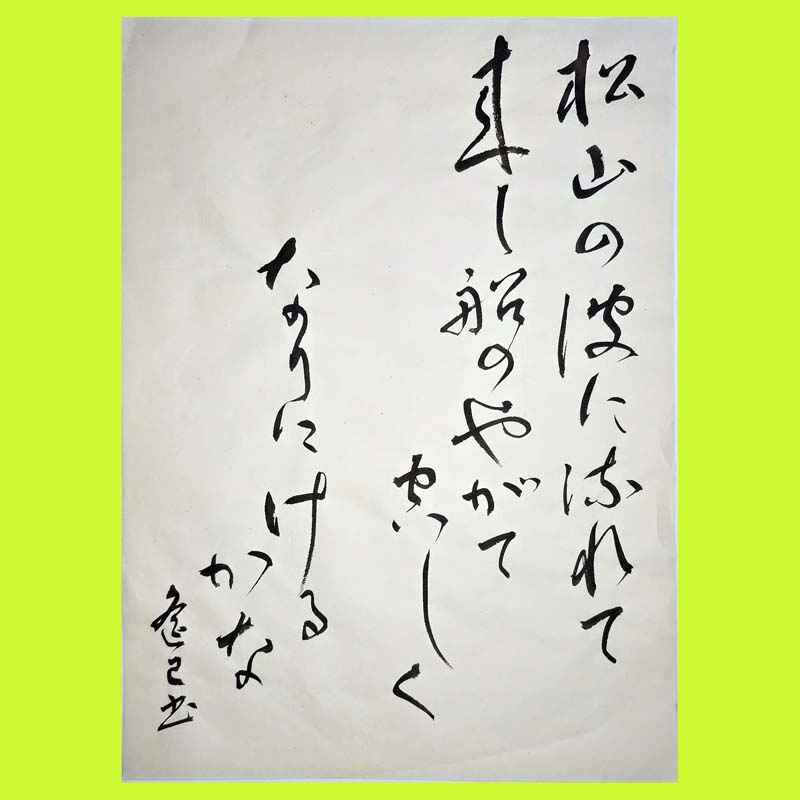 松山の波に流れて
来し船のやがて
空しく
なりにける
かな
己書